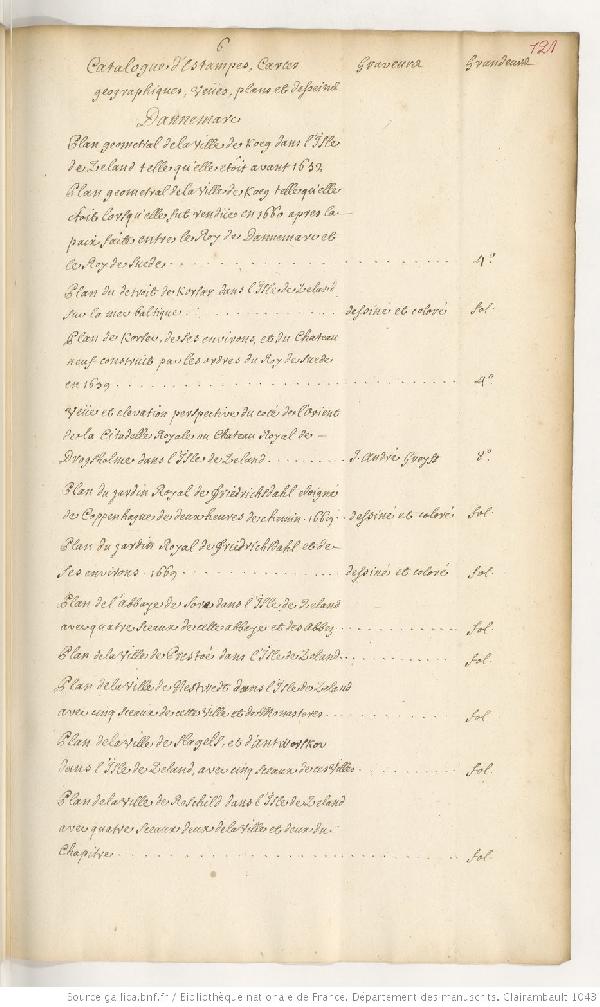 6
121
Catalogue d'Estampes, Cartes Graveure Grandeure
geographiques, Veües, plans et desseins
Dannemarc
Plan geometral de la Ville de Koeg dans l'Isle
de Zeland telle qu'elle etoit avant 1659
Plan geometral de la Ville de Koeg telle qu'elle
etoit lorsqu'elle fut rendüe en 1660 apres la
paix faite entre le Roy de Dannemarc et
le Roy de Suede 4.º
Plan du detroit de Korsor dans l'Isle de Zeland
sur la mer baltique dessiné et coloré fol.
Plan de Korsor, de ses environs, et du Chateau
neuf construit par les ordres du Roy de Suede
en 1659 4.º
Veüe et elevation perspective du coté de l'Orient
de la Citadelle Royale ou Chateau Royal de
Dragsholme dans l'Isle de Zeland J. André Greyss 8.º
Plan du jardin Royal de Friedrichsdahl eloigné
de Coppenhague de deux heures de chemin. 1669 dessiné et coloré fol.
Plan du jardin Royal de Friedrichsdahl et de
ses environs. 1669 dessiné et coloré fol.
Plan de l'abbaye de Sore dans l'Isle de Zeland
avec quatre Sceaux de cette abbaye et des Abbez fol.
Plan de la Ville de Prestoé dans l'Isle de Zeland fol.
Plan de la Ville de Nestwedt dans l'Isle de Zeland
avec cinq Sceaux de cette Ville et des Monasteres fol.
Plan de la Ville de Slagels, et d'antworskov
dans l'Isle de Zeland, avec cinq Sceaux de ces Villes fol.
Plan de la Ville de Roschild dans l'Isle de Zeland
avec quatre Sceaux deux de la Ville et deux du
Chapitre fol.
Source gallica.bnf.fr / Bibliothèque nationale de France. Département des manuscrits. Clairambault 1043